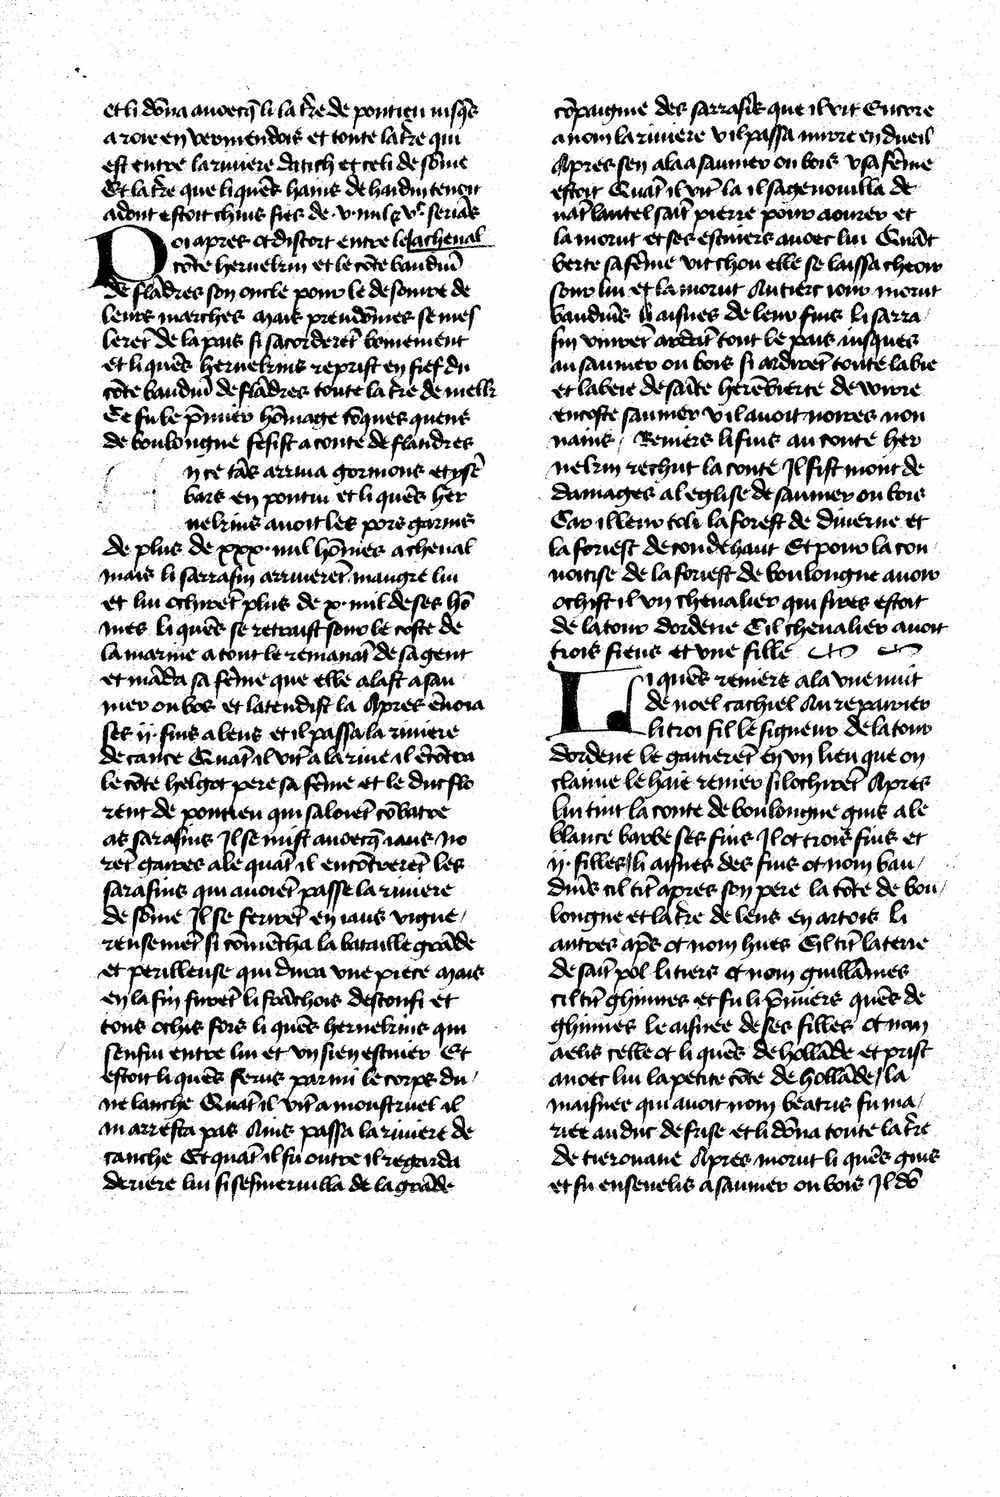 et li dõna auoecq̃ li la tr̃e de pontieu iusq̃s
a roie en vermendois et toute la tr̃e qui
est entre la riuiere dauch et celi de sõme
Et la tr̃e que li quẽs hains de haidin tenoit
adont estoit chius fies de .v. mil ⁊ vͨ. seriãs
Poi apres ot discort entre le lachenal
cõte hernekin et le cõte bauduĩ
de flãdres son oncle pour le desoiure de
leurs marches mais preudõmes se mes
lerẽt de la pais si sacorderẽt bonnement
et li quẽs hernekins reprist en fief du
cõte bauduĩ de flãdres toute la tr̃e de melk
Ce fu le p̃mier hõmage cõques quens
de boulongne fesist a conte de flandres
n ce tãs arriua gormons et ysẽ
bars en pontiu et li quẽs her
nekins auoit les pors garnis
de plus de xxx. mil hõmes a cheual
mais li sarrasin arriuerẽt maugre lui
et lui ochirẽt plus de x. mil de ses hõ
mes li quẽs se retraist sour le coste de
la marine a tout le remanãt de sa gent
et mãda sa fẽme que elle alast a sau
mer ou bos et latendist la Apres ẽuoia
ses ij. fius a lens et il passa la riuiere
de cance Quãt il vĩt a la riue il ẽcõtra
le cõte helgot pere sa fẽme et le duc flo
rent de pontieu qui saloiẽt cõbatre
as sarasins Il se mist auoecq̃ iaus No
rẽt gaires ale quãt il encõtrerẽt les
sarasins qui auoiẽt passe la riuiere
de sõme Il se ferirẽt en iaus vigue
reusemẽt si cõmẽcha la bataille grãde
et perilleuse qui dura vne piece Mais
en la fin furẽt li frãchois desconfi et
tous ochis fors li quẽs hernekins qui
senfui entre lui et vn sien escuier Et
estoit li quẽs ferus parmi le corps du
ne lanche Quãt il vĩt a monstruel il
ni arresta pas Ains passa la riuiere de
canche Et quãt il fu outre il regarda
deriere lui si sesmeruilla de la grãde
cõpaignie des sarrasĩs que il vit Encore
a nom la riuiere v il passa miroir en dueil
Apres sen ala a saumer ou bois v sa fẽme
estoit Quãt il vĩt la il sagenouilla de
uãt lautel saĩt pierre pour aourer et
la morut et ses escuiers auoec lui Quãt
berte sa fẽme vit chou elle se laissa cheoir
sour lui et la morut Au tierc iour morut
bauduĩs li aisnes de leur fius li sarra
sin vinrẽt ardãt tout le pais iusques
au saumer ou bois si ardirẽt toute labie
et labeie de saĩte herẽbierte de wirre
encoste saumer v il auoit noires non
nains / Reniers li fius au conte her
nekin rechut la conte Il fist mout de
damages a leglise de saumer ou bois
Car il leur toli la forest de diuerne et
la foriest de condehaut Et pour la con
uoitise de la foriest de boulongne auoir
ochist il vn cheualier qui sires estoit
de la tour dordene Cil cheualier auoit
trois fieus et vne fille
Li quẽs reniers ala vne nuit
de noel cachiel Au repairier
li troi fil le signeur de la tour
dordene le gaitierẽt en vn lieu que on
claime le haie renier si lochirẽt Apres
lui tint la conte de boulongne guis a le
blance barbe ses fius Il ot trois fius et
ij. filles li aisnes des fius ot nom bau
duĩs cil tĩt apres son pere la cõte de bou
longne et la tr̃e de lens en artois li
autres ap̃s ot nom hues Cil tĩt la terre
de saĩt pol li tiers ot nom guillãmes
cil tĩt ghinnes et fu li p̃miers quẽs de
ghinnes Le aisnee de ses filles ot non
aelis celle ot li quẽs de hollãde et prist
auoec lui la petite cõte de hollãde / la
maisnee qui auoit nom beatris fu ma
riee au duc de frise et li dõna toute la tr̃e
de tierouane Apres morut li quẽs guis
et fu enseuelis a saumer ou bois Il dõ